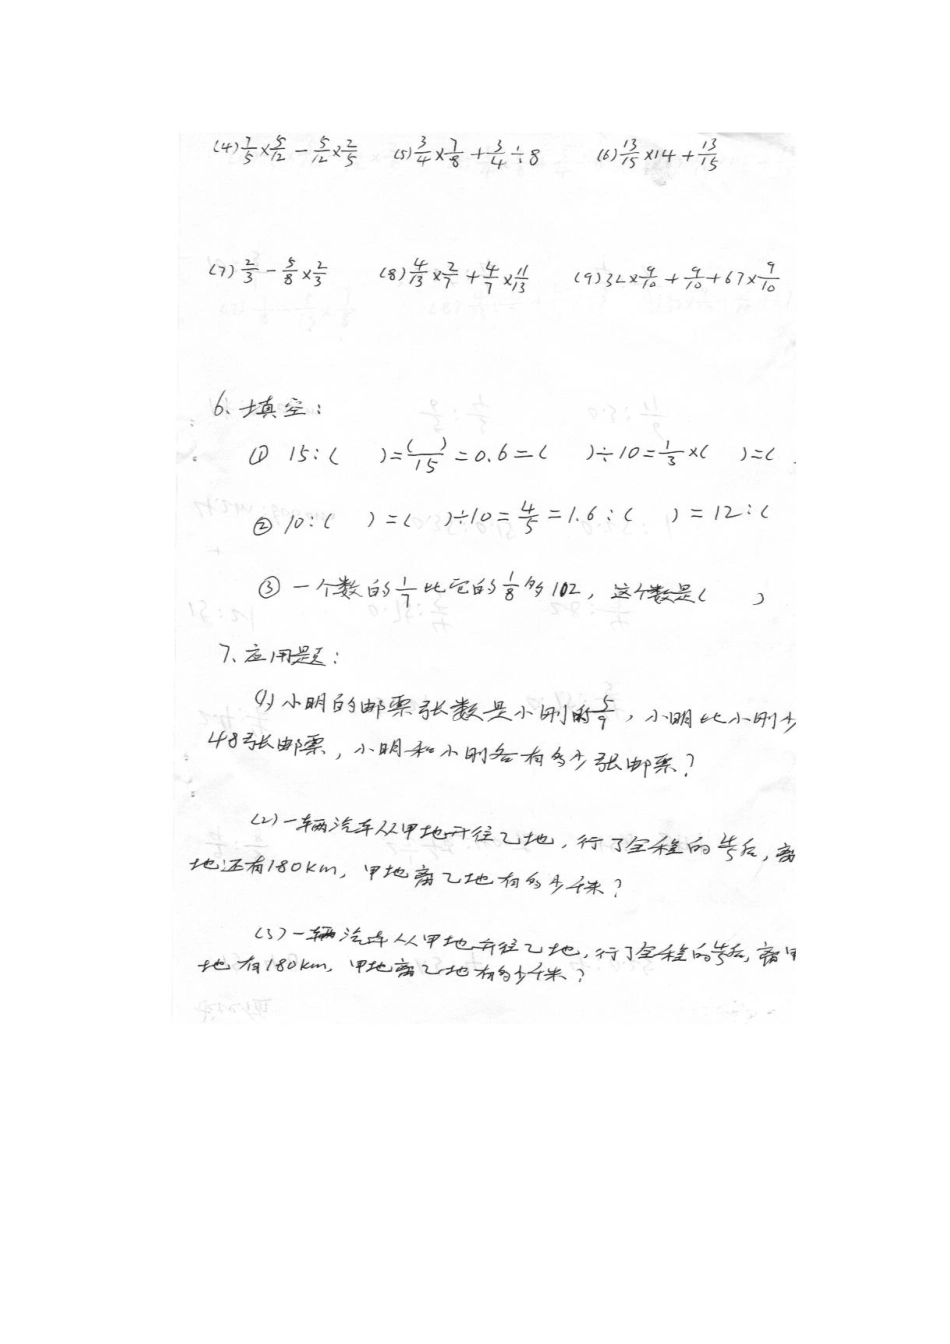 (4) 7/5 × 5/12 − 5/12 × 2/5 (5) 3/4 × 7/8 + 3/4 ÷ 8 (6) 13/15 × 14 + 13/15
(7) 2/3 − 5/8 × 2/3 (8) 4/13 × 2/7 + 4/7 × 11/13 (9) 32 × 9/10 + 9/10 + 67 × 9/10
6、填空:
① 15:( )=( )/15=0.6=( )÷10=1/3×( )=(
② 10:( )=( )÷10=4/5=1.6:( )=12:(
③ 一个数的1/7比它的1/8多102,这个数是( )
7、应用题:
(1)小明的邮票张数是小刚的5/9,小明比小刚少
48张邮票,小明和小刚各有多少张邮票?
(2)一辆汽车从甲地开往乙地,行了全程的 后,离
地还有180km,甲地离乙地有多少千米?
(3)一辆汽车从甲地开往乙地,行了全程的 后,离甲
地有180km,甲地离乙地有多少千米?